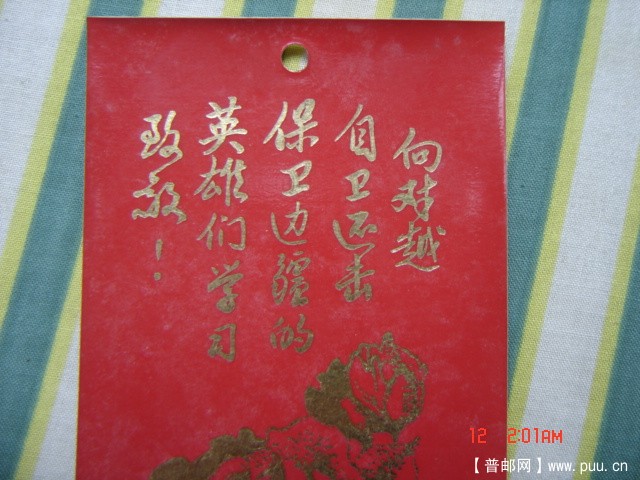 向对越
自卫还击
保卫边疆的
英雄们学习
致敬！
12 2:01AM
【普邮网】www.puu.cn